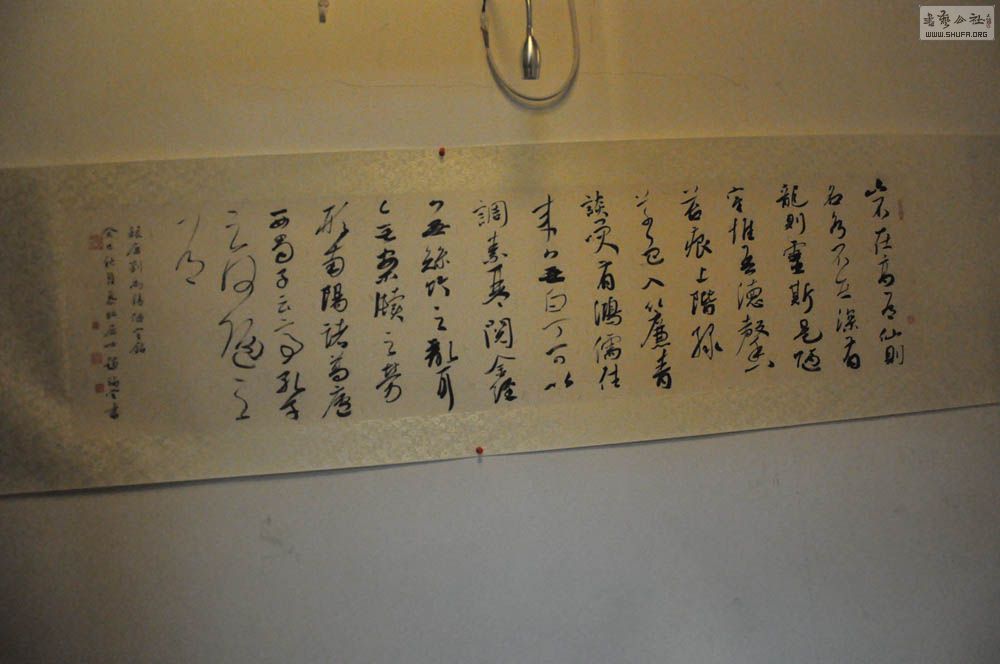 書藝公社
WWW.SHUFA.ORG
山不在高有仙則
名水不在深有
龍則靈斯是陋
室惟吾德馨
苔痕上階緑
草色入簾青
談笑有鴻儒往
來無白丁可以
調素琴閱金經
無絲竹之亂耳
無案牘之勞
形南陽諸葛廬
西蜀子云亭孔子
云何陋之
有
録唐劉禹錫陋室銘